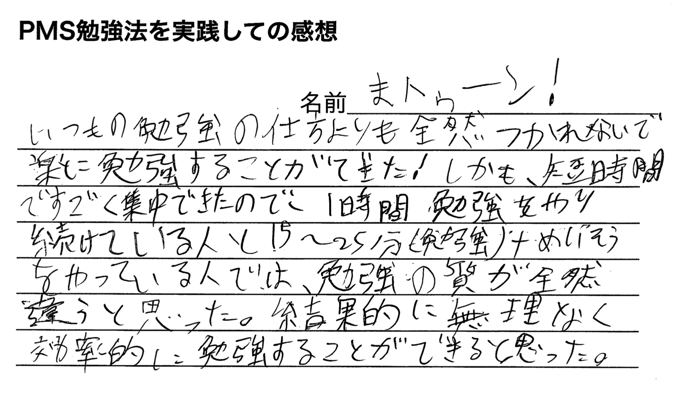 PMS勉強法を実践しての感想
名前 まトゥーン!
いつもの勉強の仕方よりも全然つかれないで
楽に勉強することができた!しかも、短時間
ですごく集中できたので、1時間勉強をやり
続けている人と15〜25分(勉強)+めいそう
をやっている人では、勉強の質が全然
違うと思った。結果的に無理なく
効率的に勉強することができると思った。